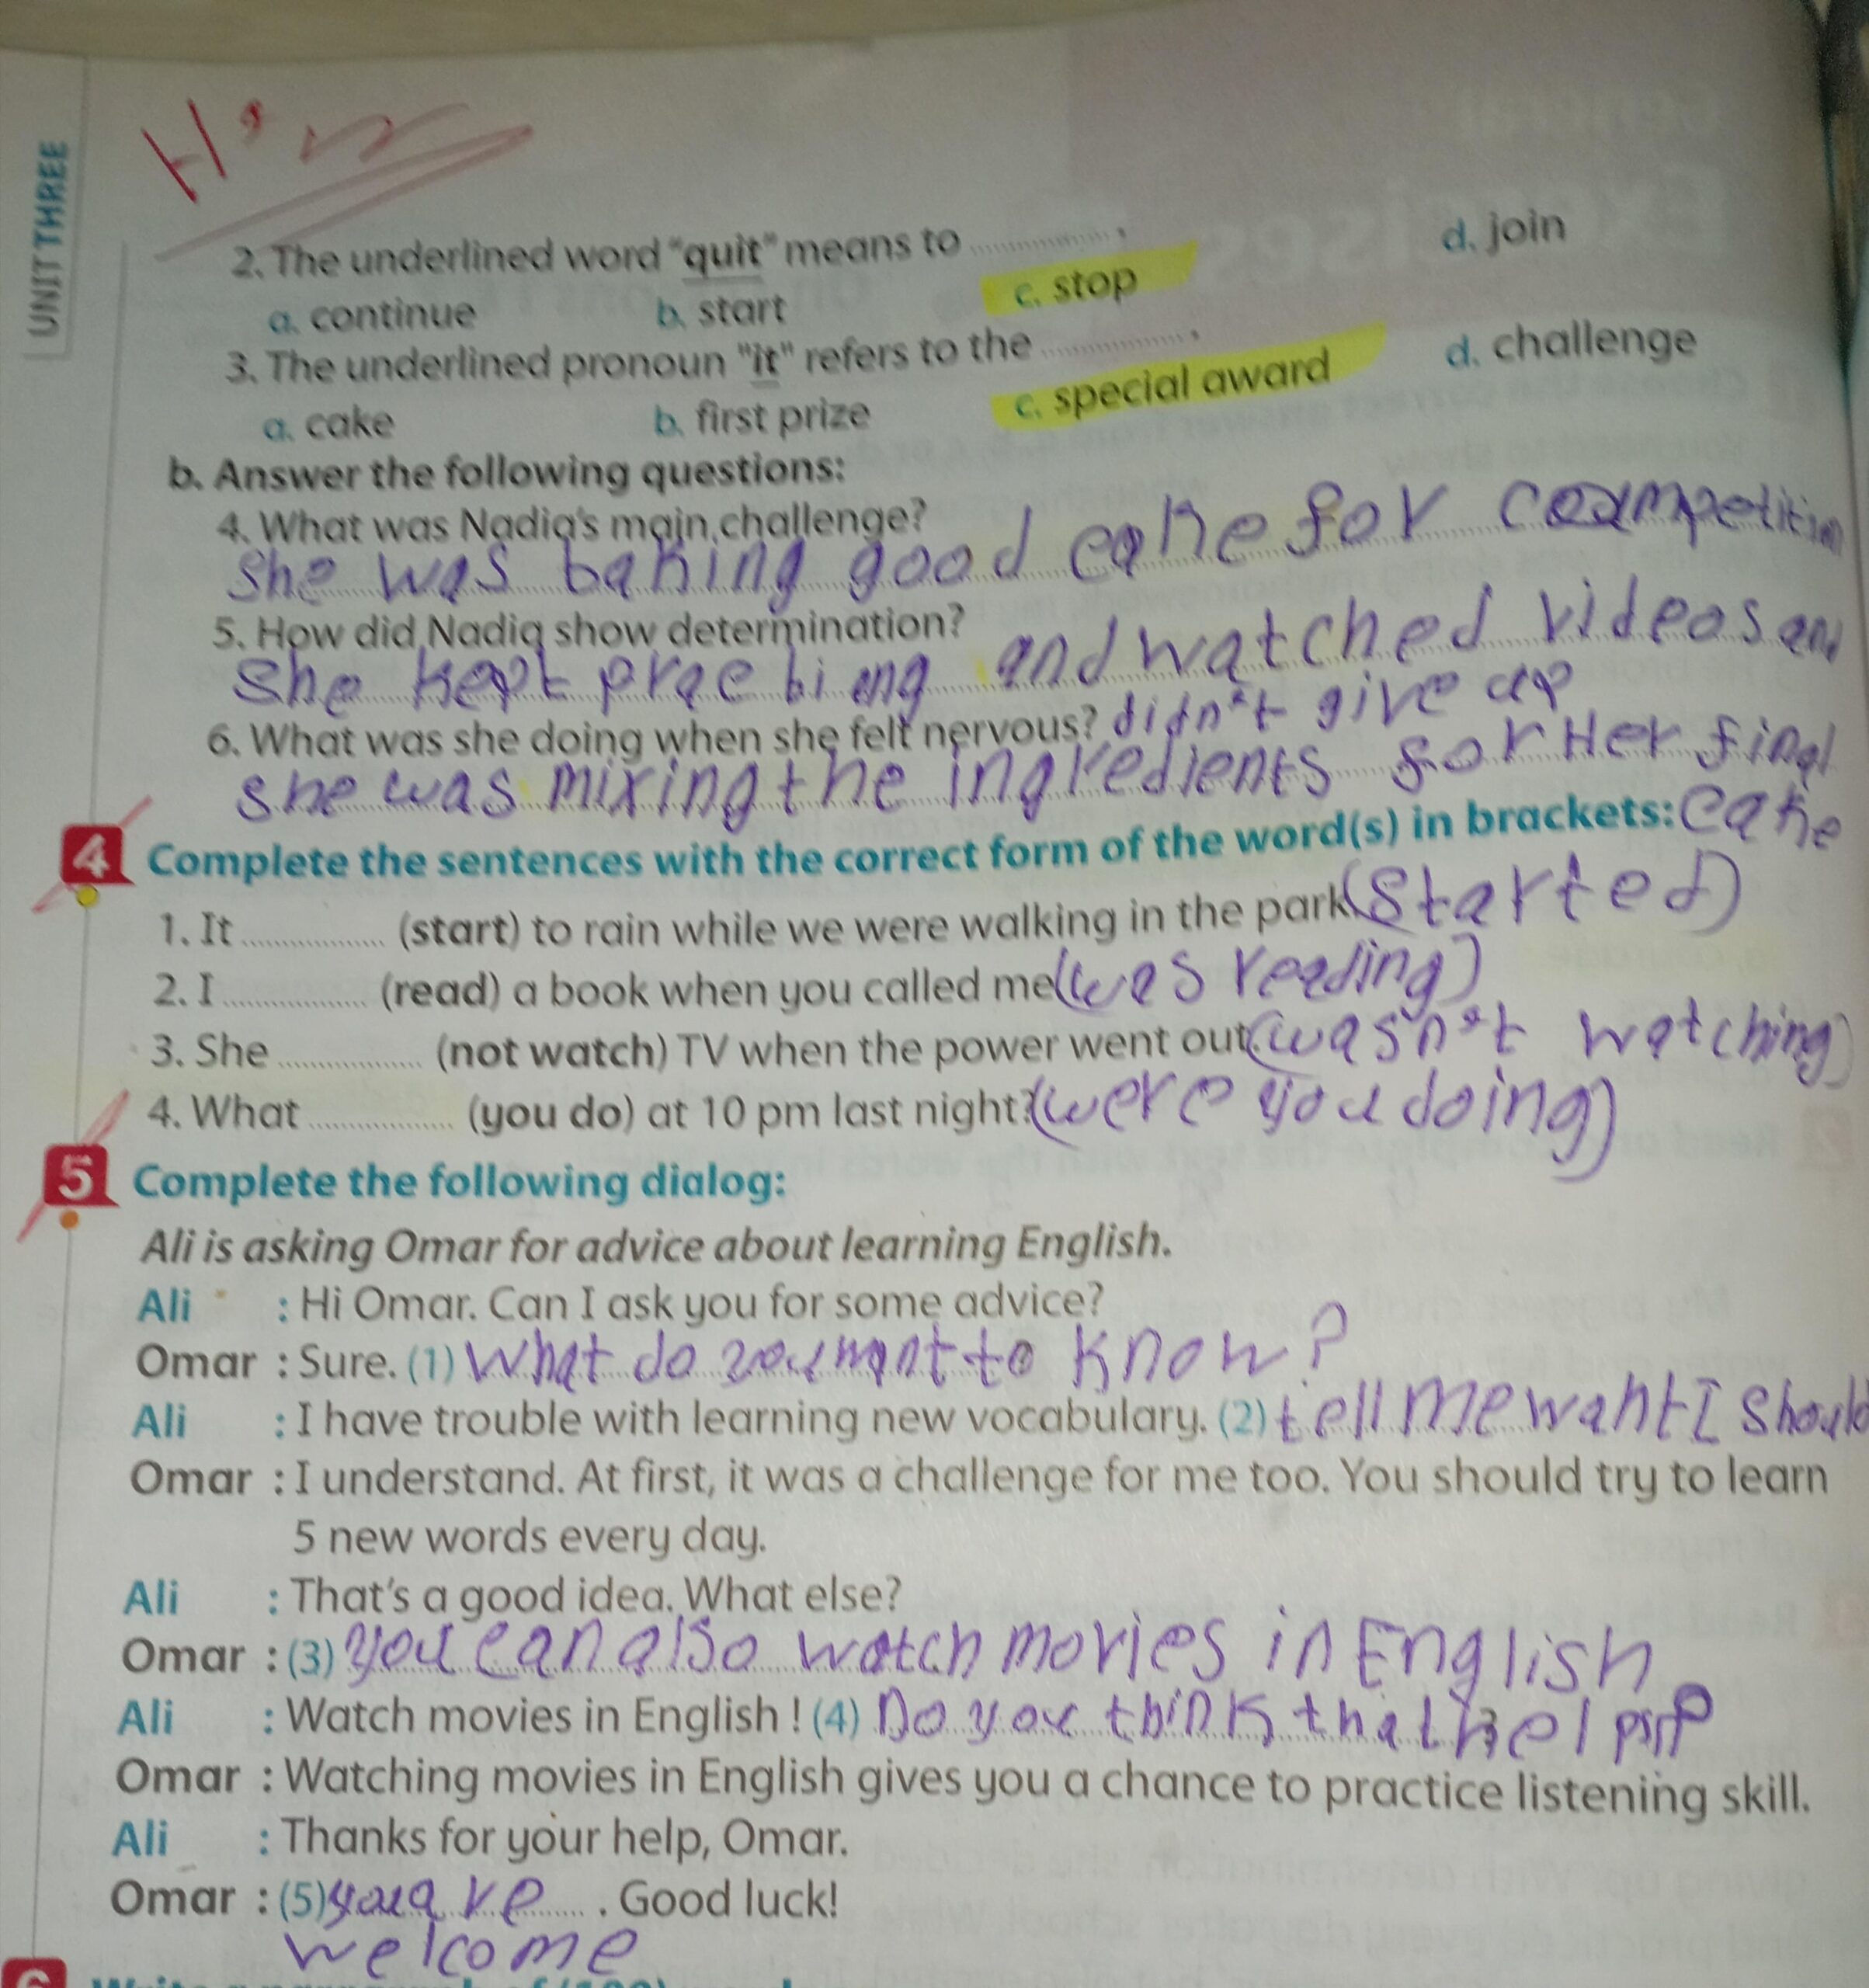 UNIT THREE
H.w
2. The underlined word "quit" means to ................ .
a. continue b. start c. stop d. join
3. The underlined pronoun "it" refers to the ................ .
a. cake b. first prize c. special award d. challenge
b. Answer the following questions:
4. What was Nadia's main challenge?
She was baking good cake for coampetition
5. How did Nadia show determination?
She kept and watched videos and
didn't give up
6. What was she doing when she felt nervous?
she was mixing the ingredients for Her final
cake
4 Complete the sentences with the correct form of the word(s) in brackets:
1. It ................ (start) to rain while we were walking in the park. (Started)
2. I ................ (read) a book when you called me (was reading)
3. She ................ (not watch) TV when the power went out. (wasn't watching)
4. What ................ (you do) at 10 pm last night? (were you doing)
5 Complete the following dialog:
Ali is asking Omar for advice about learning English.
Ali : Hi Omar. Can I ask you for some advice?
Omar : Sure. (1) What do you want to know?
Ali : I have trouble with learning new vocabulary. (2) tell me waht I should
Omar : I understand. At first, it was a challenge for me too. You should try to learn
5 new words every day.
Ali : That's a good idea. What else?
Omar : (3) you can also watch movies in English
Ali : Watch movies in English ! (4) Do you think that
Omar : Watching movies in English gives you a chance to practice listening skill.
Ali : Thanks for your help, Omar.
Omar : (5) you are ....... . Good luck!
welcome